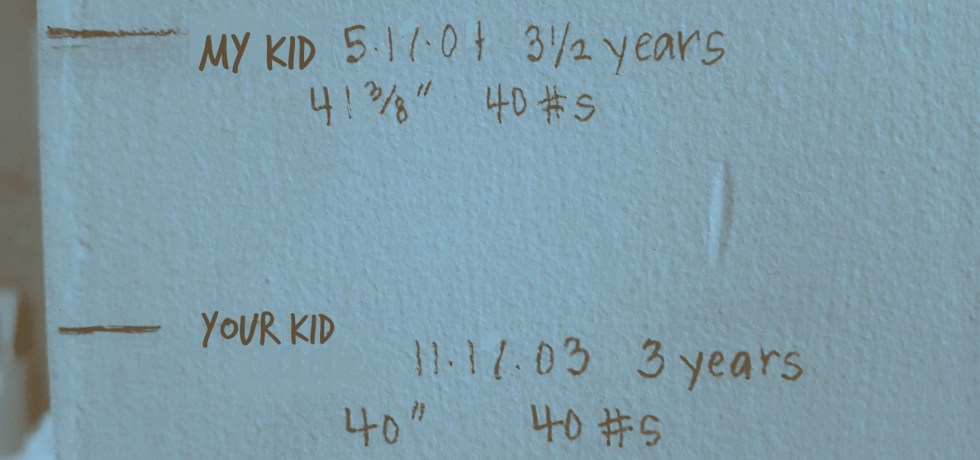 MY KID 5.11.04 3½ years
41 3/8" 40 #s
YOUR KID
11.11.03 3 years
40" 40 #s